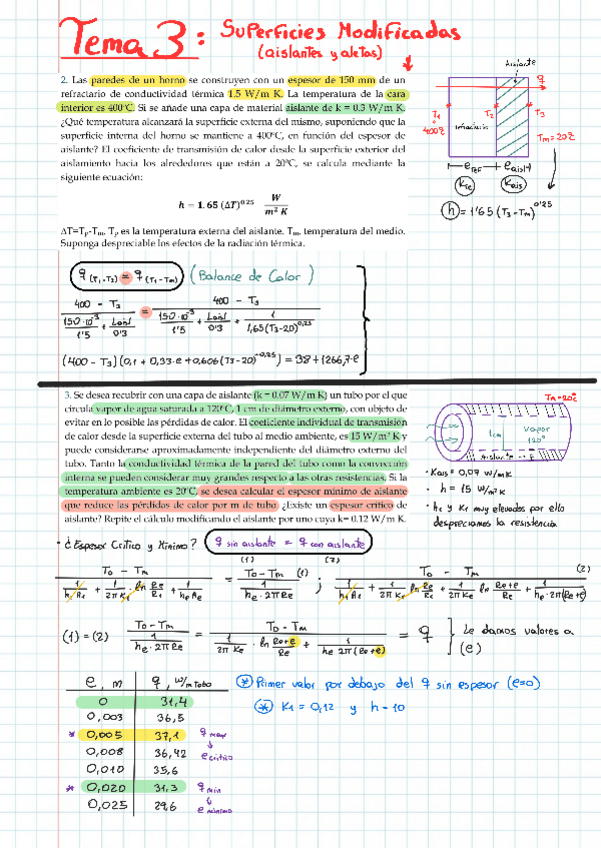 Tema 3: Superficies Modificadas
(aislantes y aletas)
2. Las paredes de un horno se construyen con un espesor de 150 mm de un
refractario de conductividad térmica 1.5 W/m K. La temperatura de la cara
interior es 400ºC. Si se añade una capa de material aislante de k = 0.3 W/m K.
¿Qué temperatura alcanzará la superficie externa del mismo, suponiendo que la
superficie interna del horno se mantiene a 400ºC, en función del espesor de
aislante? El coeficiente de transmisión de calor desde la superficie exterior del
aislamiento hacia los alrededores que están a 20ºC, se calcula mediante la
siguiente ecuación:
h = 1.65 (ΔT)^0.25 W / m² K
ΔT=Tp-Tm. Tp es la temperatura externa del aislante. Tm, temperatura del medio.
Suponga despreciable los efectos de la radiación térmica.
Aislante
q
T1 T2 T3
400ºC
refractario
Tm=20ºC
eref eaisl
Kre Kais
h = 1'65 (T3-Tm)^0'25
q(T1-T3) = q(T1-Tm) (Balance de Calor)
400 - T3 / (150·10^-3/1'5 + Laisl/0'3) = 400 - T3 / (150·10^-3/1'5 + Laisl/0'3 + 1/1,65(T3-20)^0,25)
(400 - T3)(0,1 + 0,33·e + 0,606(T3-20)^-0,25) = 38 + 1266,7·e
3. Se desea recubrir con una capa de aislante (k = 0.07 W/m K) un tubo por el que
circula vapor de agua saturada a 120ºC, 1 cm de diámetro externo, con objeto de
evitar en lo posible las pérdidas de calor. El coeficiente individual de transmisión
de calor desde la superficie externa del tubo al medio ambiente, es 15 W/m² K y
puede considerarse aproximadamente independiente del diámetro externo del
tubo. Tanto la conductividad térmica de la pared del tubo como la convección
interna se pueden considerar muy grandes respecto a las otras resistencias. Si la
temperatura ambiente es 20ºC, se desea calcular el espesor mínimo de aislante
que reduce las pérdidas de calor por m de tubo. ¿Existe un espesor crítico de
aislante? Repite el cálculo modificando el aislante por uno cuya k= 0.12 W/m K.
Tm=20ºC
1cm
vapor
120º
Aislante
· Kais = 0,07 W/mK
· h = 15 W/m²K
· hi y K1 muy elevados por ello
despreciamos la resistencia
· ¿Espesor Crítico y Mínimo? q sin aislante = q con aislante
(1) (2)
To - Tm / (1/hiAi + 1/2πK1 · ln Re/Ri + 1/heAe) = To - Tm / (1/he·2πRe) (1) ; To - Tm / (1/hiAi + 1/2πK1 ln Re/Ri + 1/2πK1 ln Re+e/Re + 1/he·2π(Re+e)) (2)
(1) = (2) To - Tm / (1/he·2πRe) = To - Tm / (1/2πK1 · ln Re+e/Re + 1/he 2π(Re+e)) = q } Le damos valores a
(e)
e, m q, W/m Tubo
0 31,4
0,003 36,5
* 0,005 37,1 q max
0,008 36,42 e crítico
0,010 35,6
* 0,020 31,3 q min
0,025 29,6 e mínimo
* Primer valor por debajo del q sin espesor (e=0)
* K1 = 0,12 y h = 10